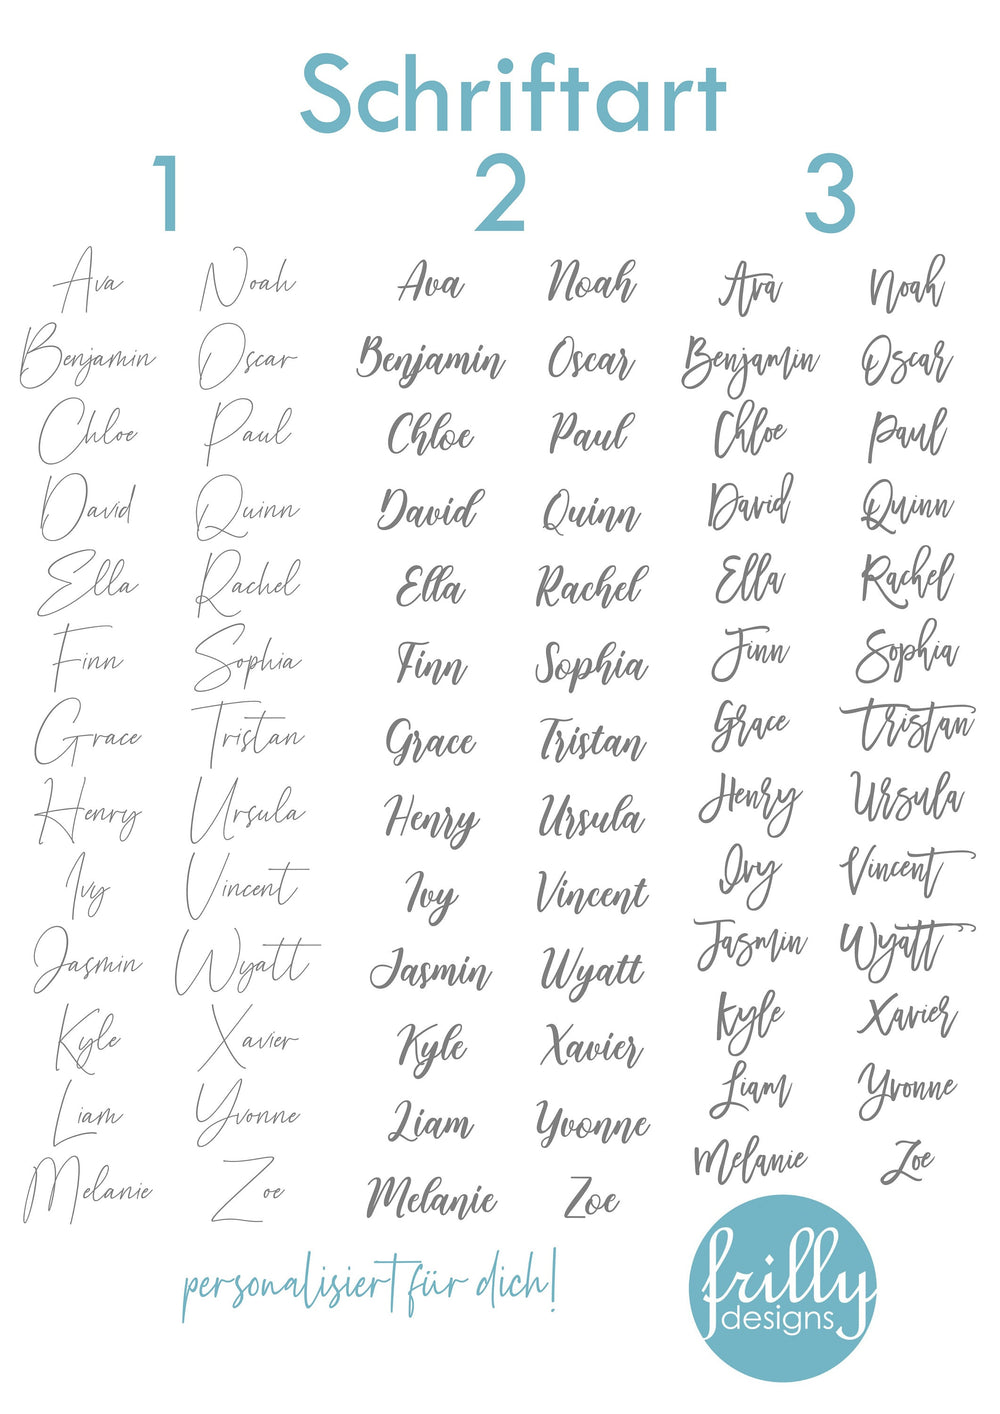 Schriftart
1 2 3
Ava Noah Ava Noah Ava Noah
Benjamin Oscar Benjamin Oscar Benjamin Oscar
Chloe Paul Chloe Paul Chloe Paul
David Quinn David Quinn David Quinn
Ella Rachel Ella Rachel Ella Rachel
Finn Sophia Finn Sophia Finn Sophia
Grace Tristan Grace Tristan Grace Tristan
Henry Ursula Henry Ursula Henry Ursula
Ivy Vincent Ivy Vincent Ivy Vincent
Jasmin Wyatt Jasmin Wyatt Jasmin Wyatt
Kyle Xavier Kyle Xavier Kyle Xavier
Liam Yvonne Liam Yvonne Liam Yvonne
Melanie Zoe Melanie Zoe Melanie Zoe
personalisiert für dich!
frilly
designs